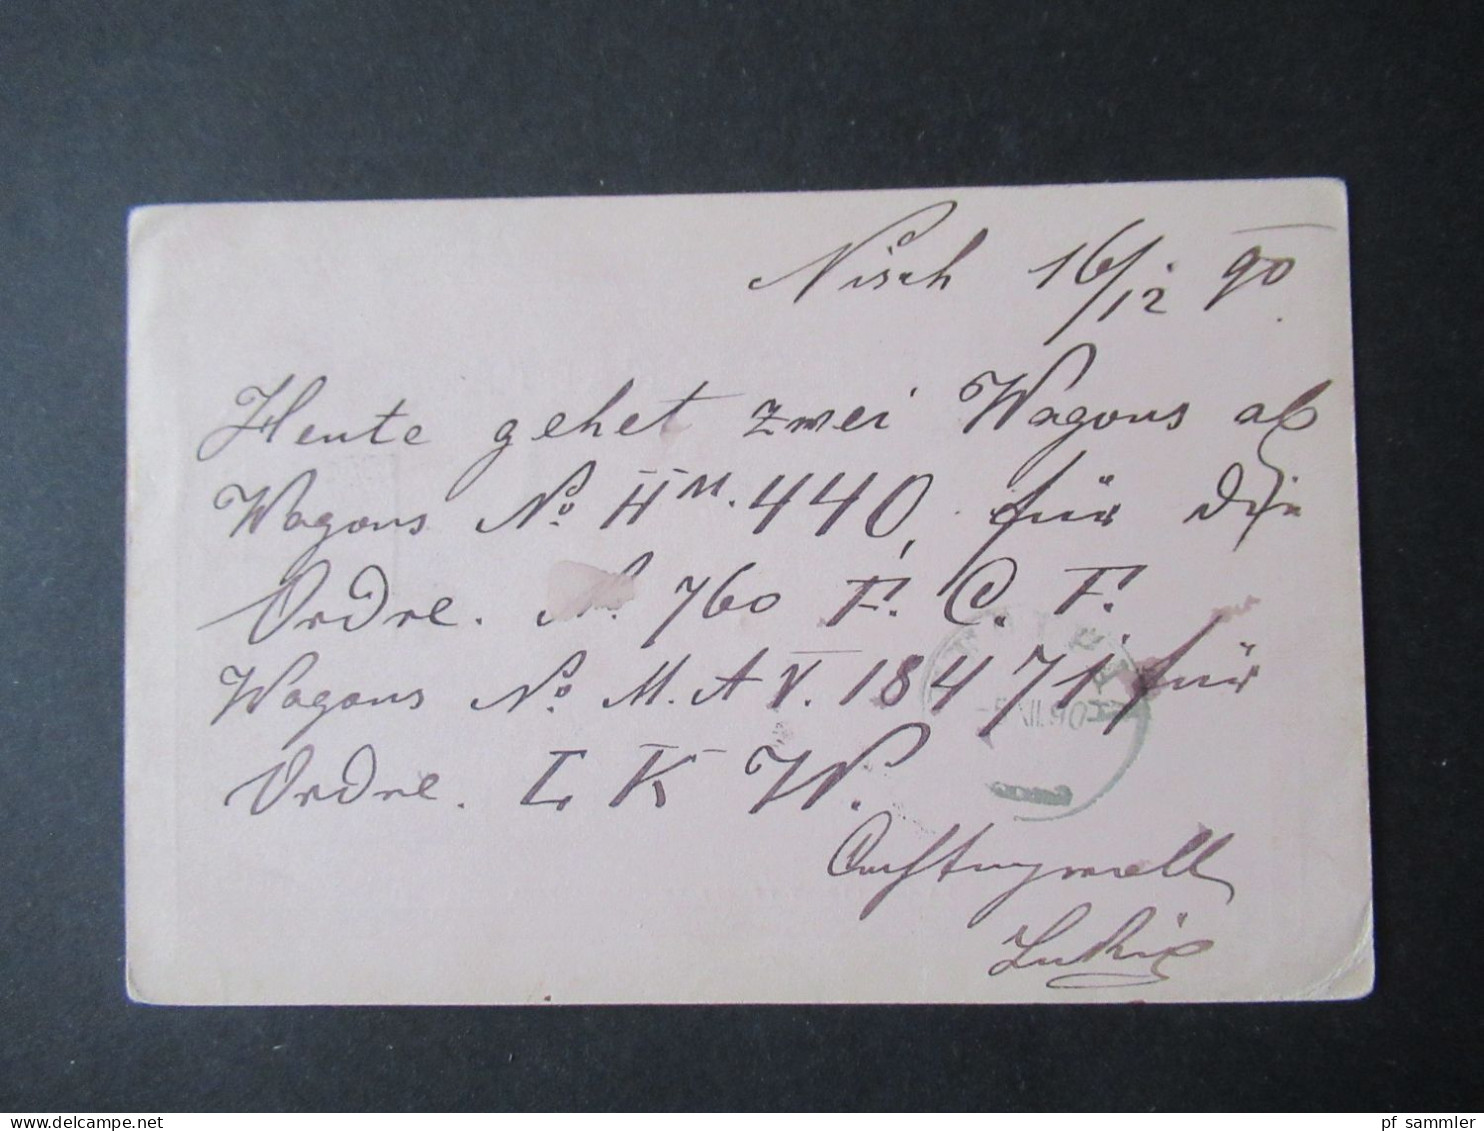 Nisch 16/12 90
Heute gehet zwei Wagons ab
Wagons No. HM. 440, für die
Ordre. N. 760 F. C. F.
Wagons No. M. A V. 18471, für
Ordre. L K W.
Achtungsvoll
XII. 90
pf sammler
delcampe.net